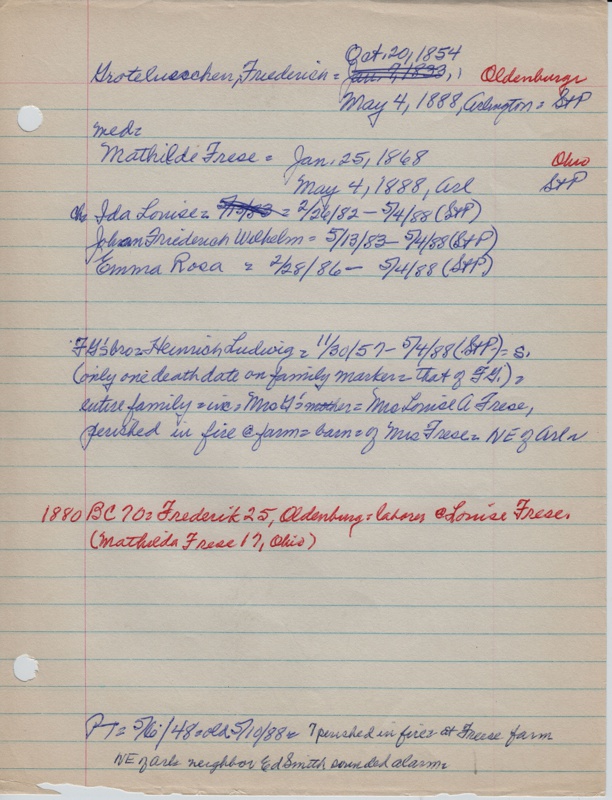 Oct. 20, 1854
Grotelusschen, Friederich = Jan. 7, 1833, Oldenburg
May 4, 1888, Arlington = StP
med =
Mathilde Frese = Jan. 25, 1868 Ohio
May 4, 1888, Arl StP
ch = Ida Louise = 5/13/83 = 2/26/82 - 5/4/88 (StP)
Johann Friederich Wilhelm = 5/13/83 - 5/4/88 (StP)
Emma Rosa = 2/28/86 - 5/4/88 (StP)
FG's bro = Heinrich Ludwig = 11/30/57 - 5/4/88 (StP) = S.
(only one death date on family marker = that of FG.) =
entire family = inc = Mrs G's mother = Mrs Louise A Frese,
perished in fire @ farm = barn = of Mrs Frese = NE of Arl ~
1880 BC 70 = Frederik 25, Oldenburg = laborer @ Louise Frese.
(Mathilda Frese 17, Ohio)
PT = 5/6/48 = old 5/10/88 = 7 perished in fire = at Freese farm
NE of Arl = neighbor Ed Smith sounded alarm =